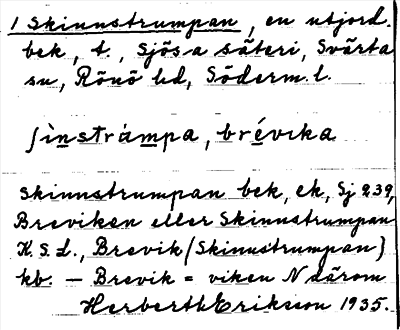 1 Skinnstrumpan, en utjord.
bek, t. Sjösa säteri, Svärta
sn, Rönö hd, Söderm. l.
ʃìnstråmpa, brévika
Skinnstrumpan bek, ek, Sj 239,
Breviken eller Skinnstrumpan
K.S.L., Brevik (Skinnstrumpan)
kb. — Brevik = viken N därom
Herberth Eriksson 1935.